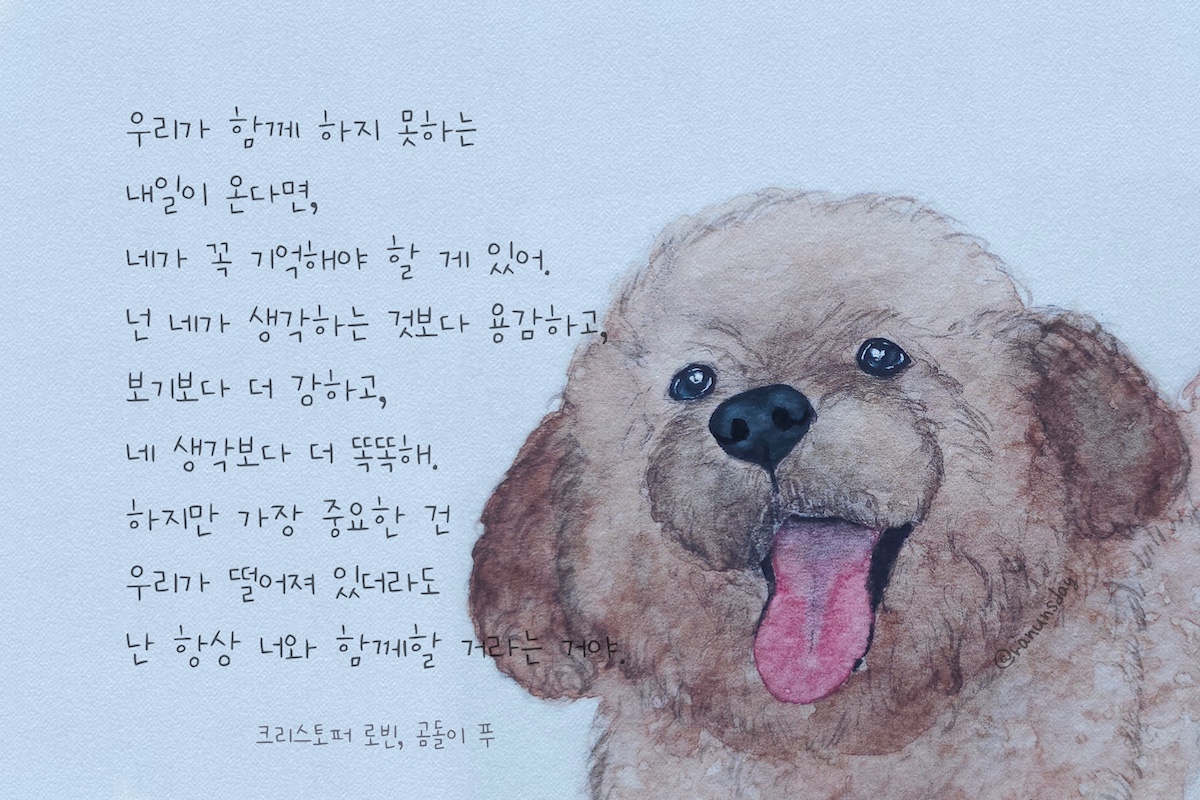 우리가 함께 하지 못하는
내일이 온다면,
네가 꼭 기억해야 할 게 있어.
넌 네가 생각하는 것보다 용감하고,
보기보다 더 강하고,
네 생각보다 더 똑똑해.
하지만 가장 중요한 건
우리가 떨어져 있더라도
난 항상 너와 함께할 거라는 거야.
크리스토퍼 로빈, 곰돌이 푸
@ranunsday